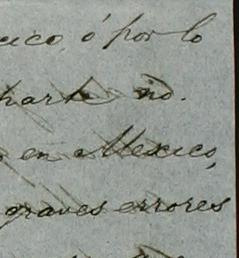 ó por lo
parte no.
en Mexico,
graves errores